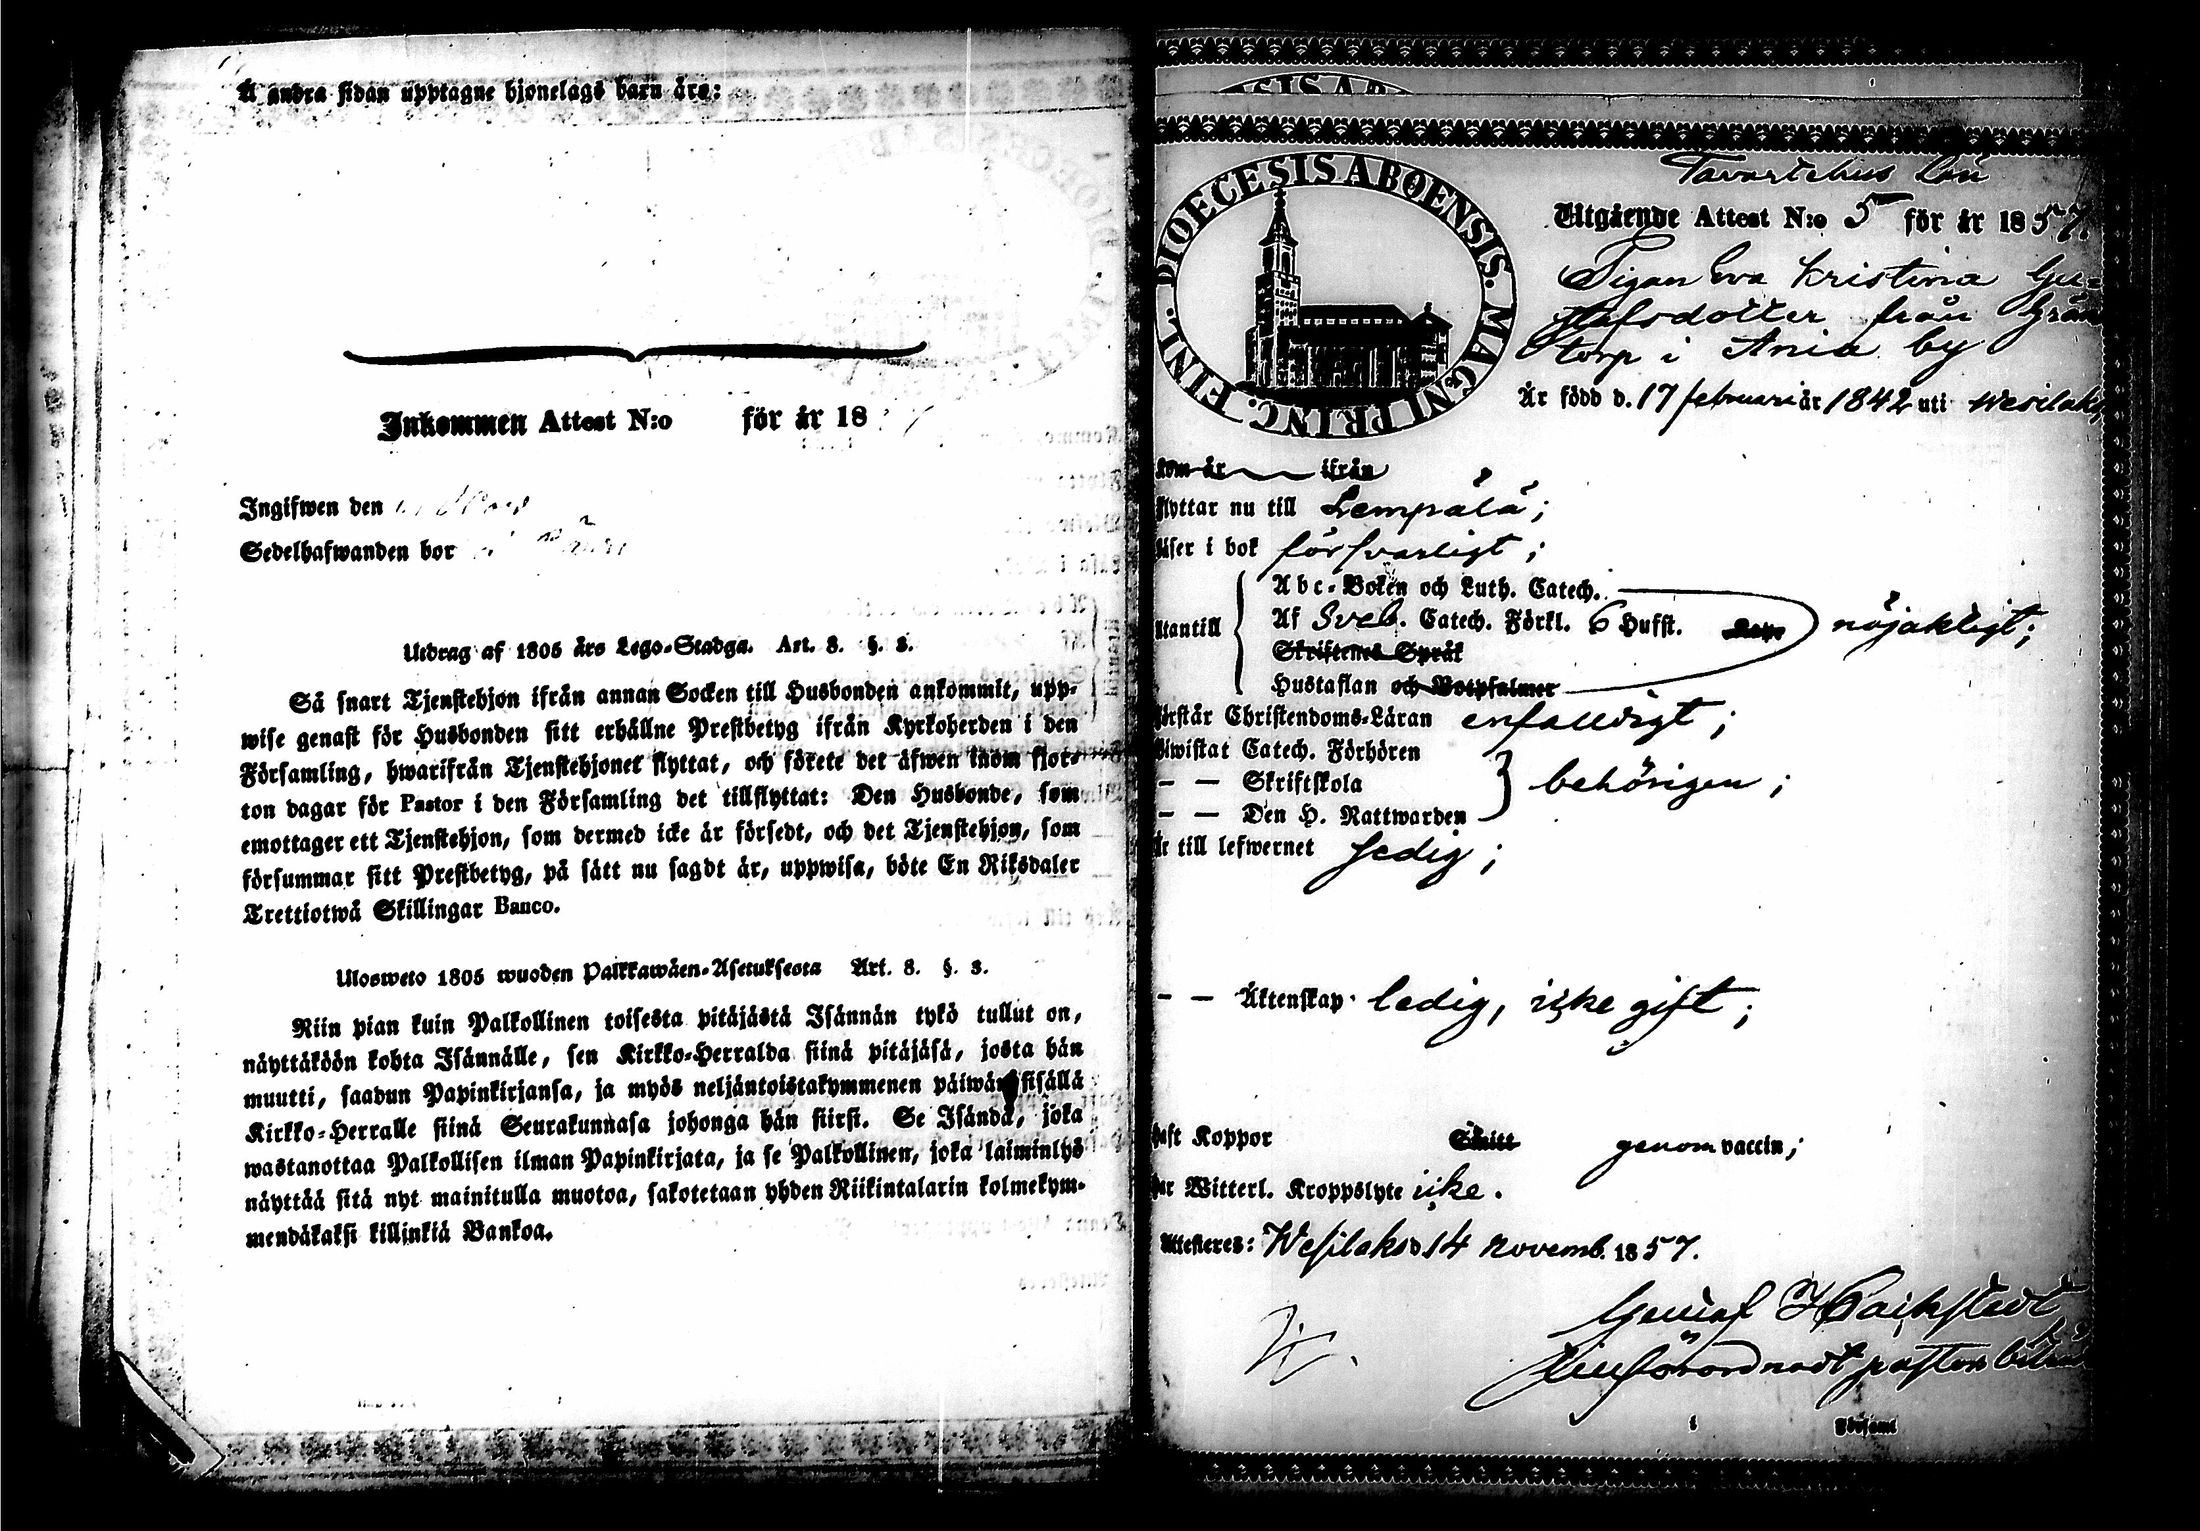 Å andra sidan upptagne hjonelags barn äro:
Inkommen Attest N:o för år 18
Ingifwen den
Sedelhafwanden bor
Utdrag af 1805 års Lego-Stadga. Art. 8. §. 3.
Så snart Tjenstehjon ifrån annan Socken till Husbonden ankommit, upp-
wise genast för Husbonden sitt erhållne Prestbetyg ifrån Kyrkoherden i den
Församling, hwarifrån Tjenstehjonet flyttat, och förete det äfwen inom fjor-
ton dagar för Pastor i den Församling det tillflyttat: Den Husbonde, som
emottager ett Tjenstehjon, som dermed icke är försedt, och det Tjenstehjon, som
försummar sitt Prestbetyg, på sätt nu sagdt är, uppwisa, böte En Riksdaler
Trettiotwå Skillingar Banco.
Ulosweto 1805 wuoden Palkkawäen-Asetuksesta Art. 8. §. 3.
Niin pian kuin Palkollinen toisesta pitäjästä Isännän tykö tullut on,
näyttäköön kohta Isännälle, sen Kirkko-Herralda siinä pitäjäsä, josta hän
muutti, saadun Papinkirjansa, ja myös neljäntoistakymmenen päiwän sisällä
Kirkko-Herralle siinä Seurakunnasa johonga hän siirsi. Se Isändä, joka
wastanottaa Palkollisen ilman Papinkirjata, ja se Palkollinen, joka laiminlyö
näyttää sitä nyt mainitulla muotoa, sakotetaan yhden Riikintalarin kolmekym-
mendäkaksi killinkiä Bankoa.
ESIS AB
DIOECESIS ABOENSIS. MAGNI PRINC. FINL.
Tavastehus Län
Utgående Attest N:o 5 för år 1857.
Pigan Eva Kristina Gu-
stafsdotter från Grän
torp i Ania by
Är född d. 17 februari år 1842 uti Wesilaks,
kom år ifrån
flyttar nu till Lempälä;
läser i bok försvarligt;
Abc-Boken och Luth. Catech.
utantill Af Sveb. Catech. Förkl. 6 Hufst. nöjaktigt;
Skriftenes Språk
Hustaflan och Botpsalmer
förstår Christendoms-Läran enfalldigt;
bewistat Catech. Förhören
— — Skriftskola behörigen;
— — Den H. Nattwarden
är till lefwernet sedig;
— — Äktenskap ledig, icke gift;
haft Koppor Smitt genom vaccin;
har Witterl. Kroppslyte icke.
Attesteres: Wesilaks d 14 novemb. 1857.
Gustaf
förordnadt pastors
Församl